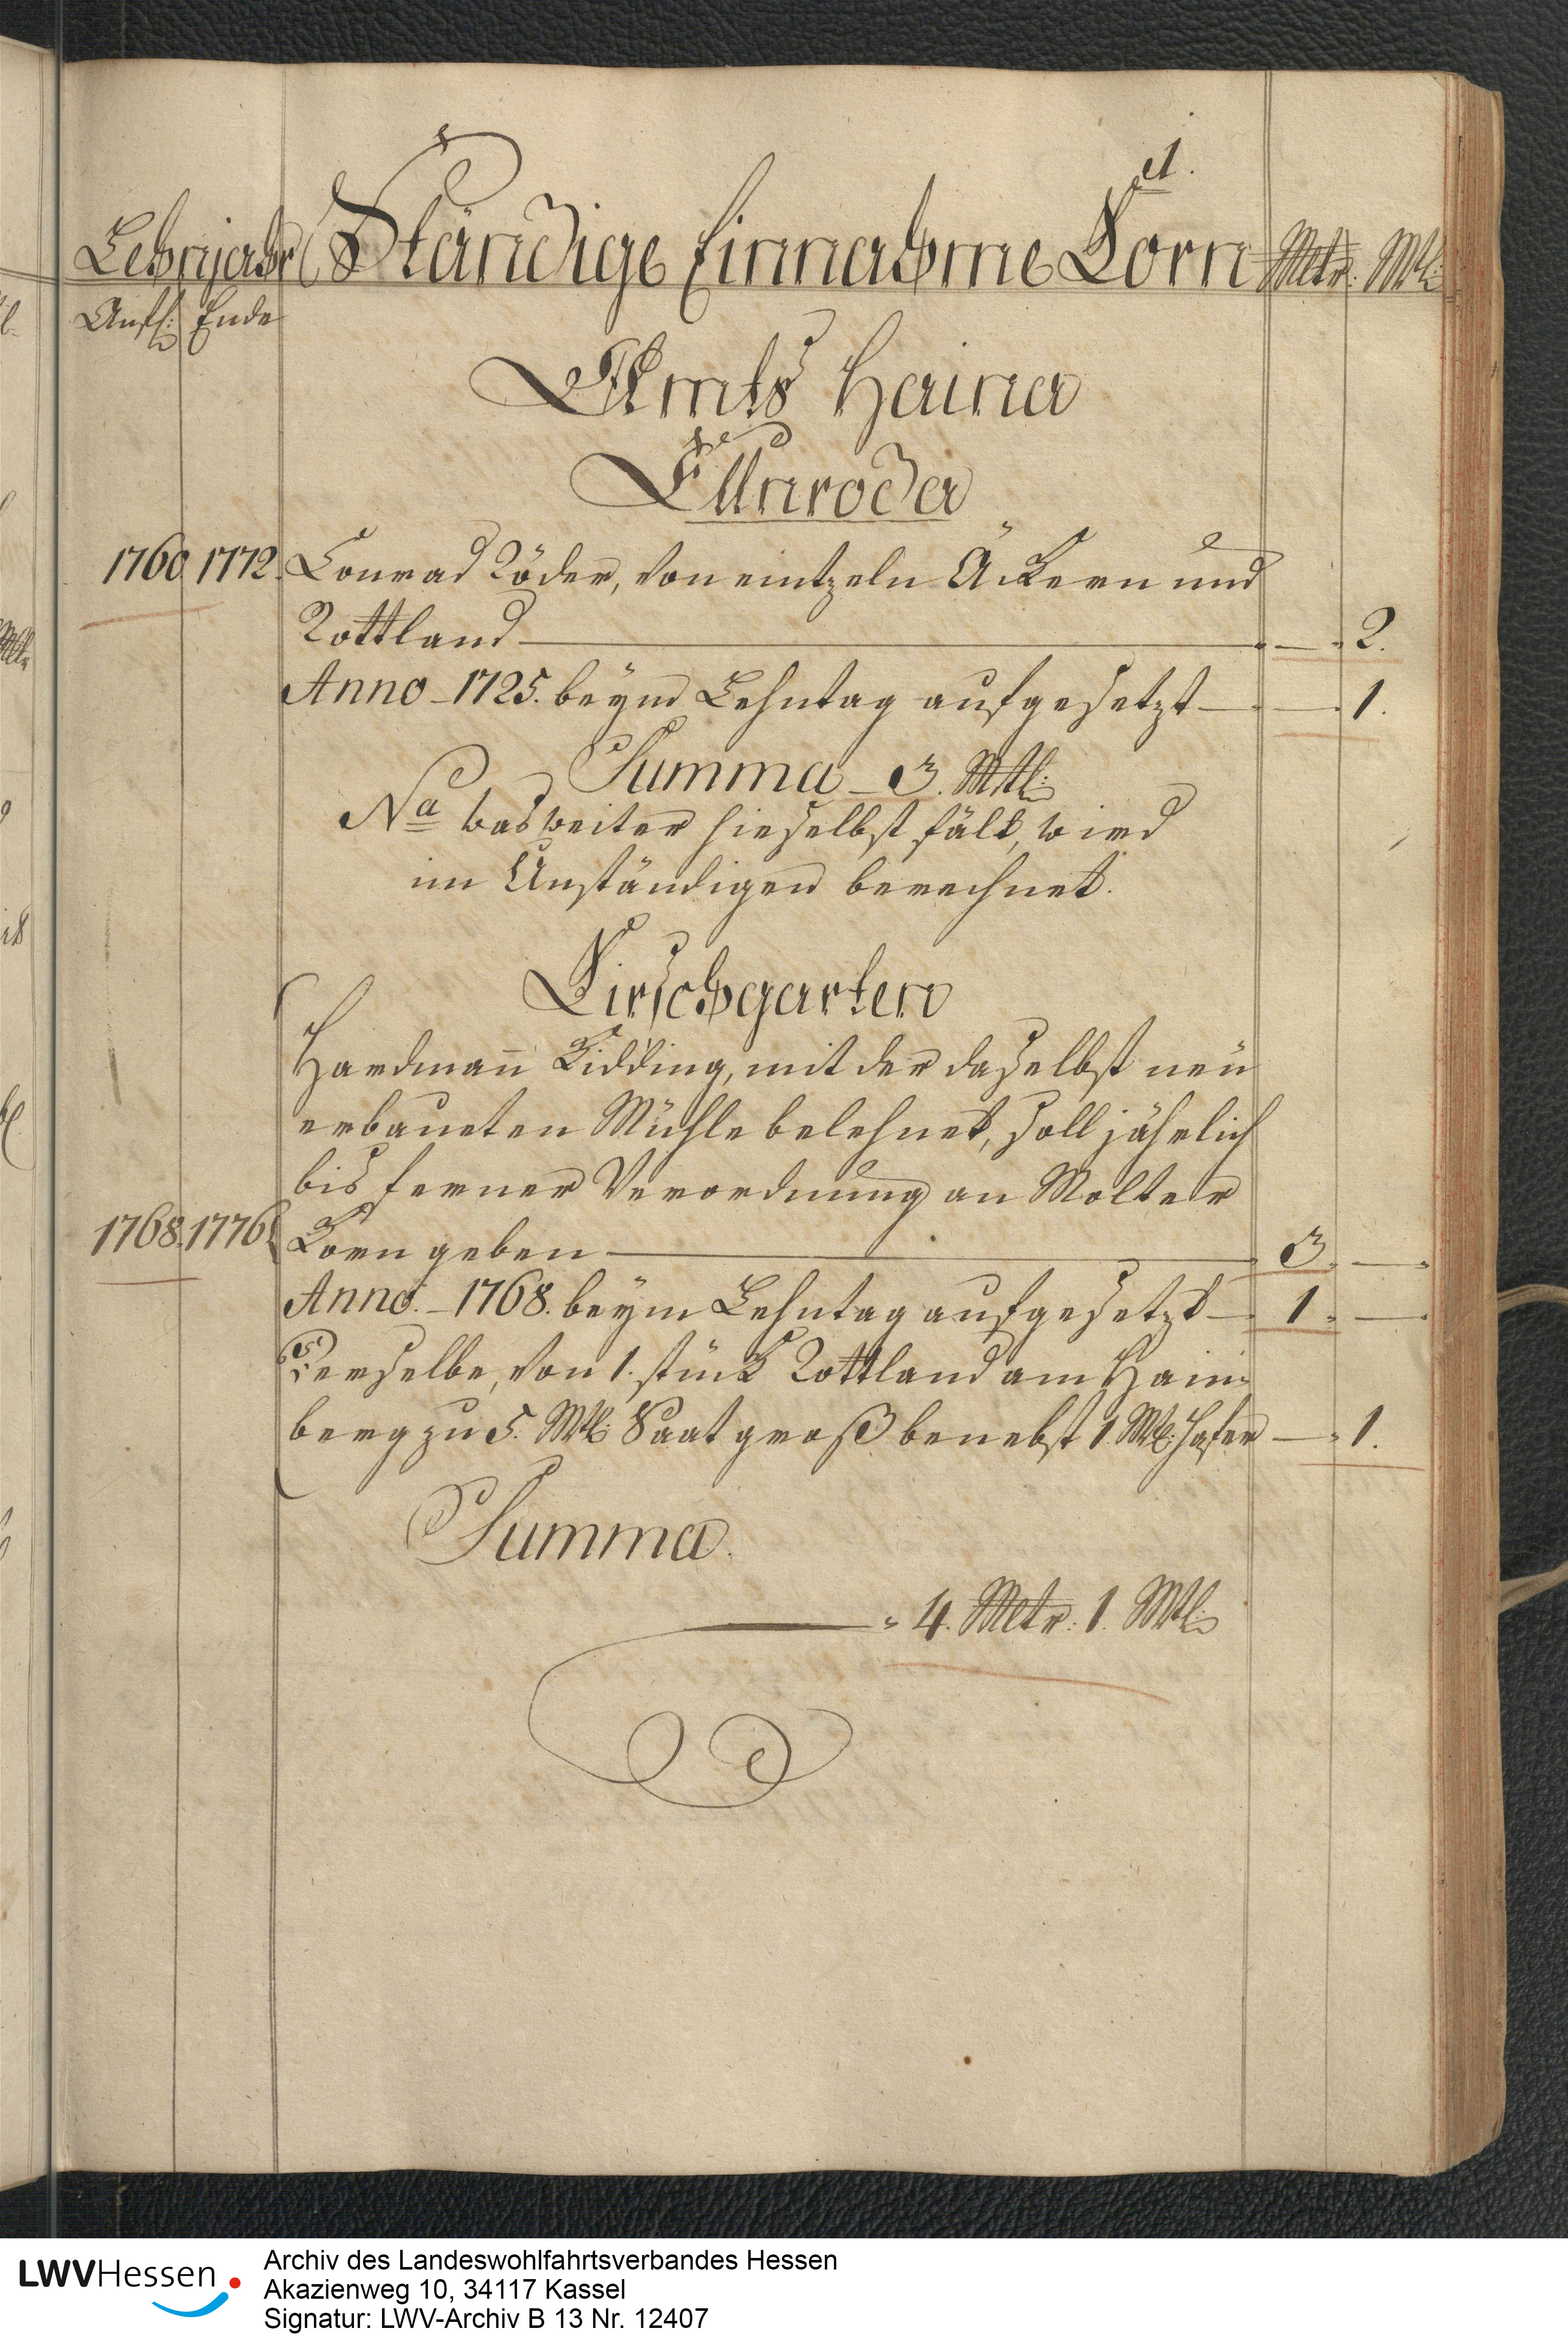 1.
Lehnjahr Ständige Einnahme Korn Mltr. Mtl:
Anf: Ende
Ambts Haina
Ellnroda
1760. 1772. Conrad Röder, von eintzeln Äckern und
Rottland — 2.
Anno 1725. beym Lehntag aufgesetzt — 1.
Summa 3. Mtl:
Na was weiter hieselbst fält, wird
im Unständigen berechnet.
Kirschgarten
Hardmañ Kidding, mit der daselbst neu
erbaueten Mühle belehnet, soll jährlich
bis ferner Verordnung an Molter
1768. 1776. Korn geben — 3. —
Anno. 1768. beym Lehntag aufgesetzt — 1. —
Derselbe, von 1. stück Rottland am Hain-
berg zu 5. Mtl: Saat groß benebst 1 Mtl: Hafer — 1.
Summa.
— 4. Mltr. 1. Mtl:
LWVHessen
Archiv des Landeswohlfahrtsverbandes Hessen
Akazienweg 10, 34117 Kassel
Signatur: LWV-Archiv B 13 Nr. 12407